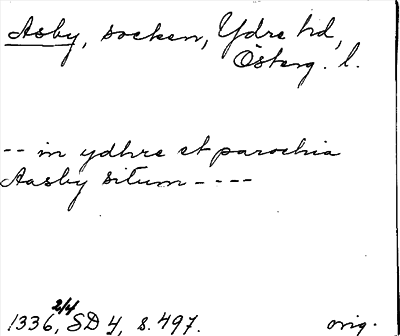 Asby, socken, Ydre hd,
Österg. l.
-- in ydhre et parochia
Aasby situm ----
1336, 2/4 SD 4, s. 497. orig.